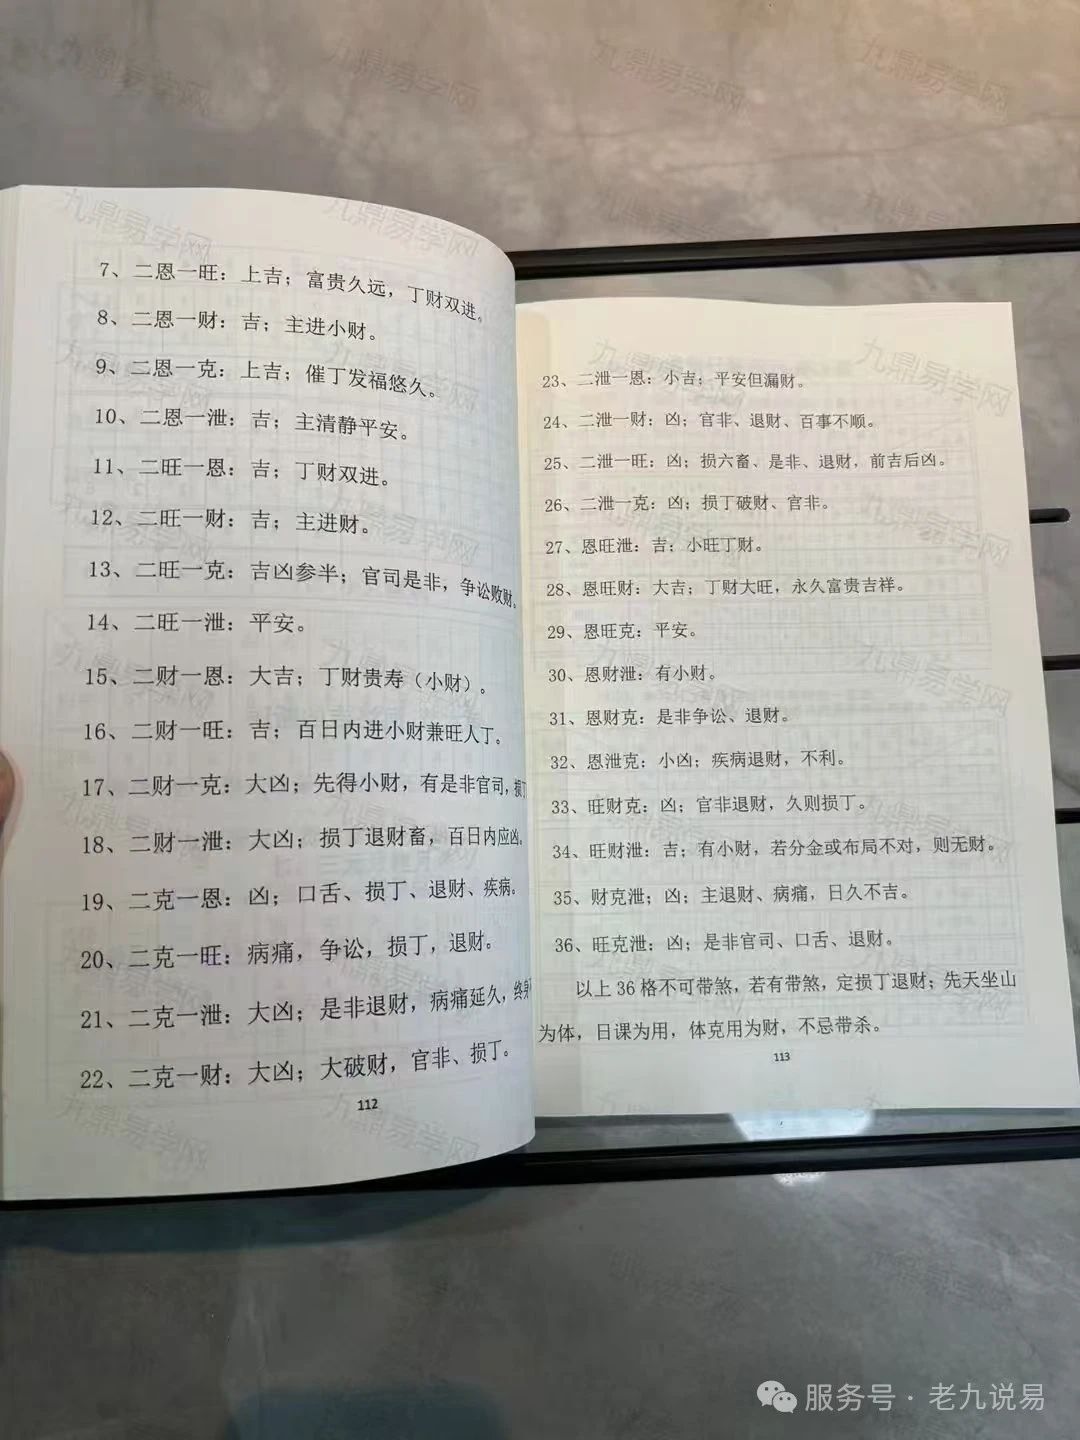 7、二恩一旺：上吉；富贵久远，丁财双进。
8、二恩一财：吉；主进小财。
9、二恩一克：上吉；催丁发福悠久。
10、二恩一泄：吉；主清静平安。
11、二旺一恩：吉；丁财双进。
12、二旺一财：吉；主进财。
13、二旺一克：吉凶参半；官司是非，争讼败财。
14、二旺一泄：平安。
15、二财一恩：大吉；丁财贵寿（小财）。
16、二财一旺：吉；百日内进小财兼旺人丁。
17、二财一克：大凶；先得小财，有是非官司，损丁
18、二财一泄：大凶；损丁退财畜，百日内应凶。
19、二克一恩：凶；口舌、损丁、退财、疾病。
20、二克一旺：病痛，争讼，损丁，退财。
21、二克一泄：大凶；是非退财，病痛延久，终身
22、二克一财：大凶；大破财，官非、损丁。
112
23、二泄一恩：小吉；平安但漏财。
24、二泄一财：凶；官非、退财、百事不顺。
25、二泄一旺：凶；损六畜、是非、退财，前吉后凶。
26、二泄一克：凶；损丁破财、官非。
27、恩旺泄：吉；小旺丁财。
28、恩旺财：大吉；丁财大旺，永久富贵吉祥。
29、恩旺克：平安。
30、恩财泄：有小财。
31、恩财克：是非争讼、退财。
32、恩泄克：小凶；疾病退财，不利。
33、旺财克：凶；官非退财，久则损丁。
34、旺财泄：吉；有小财，若分金或布局不对，则无财。
35、财克泄；凶；主退财、病痛，日久不吉。
36、旺克泄：凶；是非官司、口舌、退财。
以上 36 格不可带煞，若有带煞，定损丁退财；先天坐山
为体，日课为用，体克用为财，不忌带杀。
113
九鼎易学网
服务号·老九说易